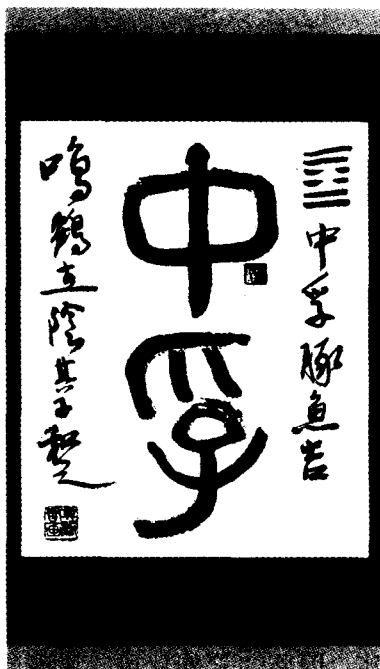 中孚豚魚吉
中孚
鳴鶴在陰其子和之